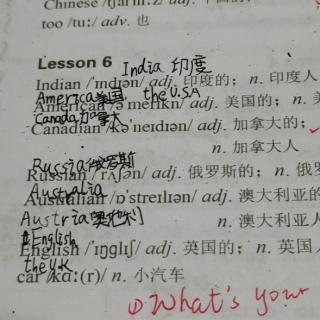 Chinese /tʃaɪˈniːz/ adj. 中国的;
too /tuː/ adv. 也
Lesson 6
India 印度
Indian /ˈɪndɪən/ adj. 印度的; n. 印度人
America美国 the U.S.A
American /əˈmerɪkn/ adj. 美国的; n. 美
Canada加拿大
Canadian /kəˈneɪdɪən/ adj. 加拿大的;
n. 加拿大人
Russia俄罗斯
Russian /ˈrʌʃən/ adj. 俄罗斯的; n. 俄罗
Australia
Australian /ɒˈstreɪlɪən/ adj. 澳大利亚的
Austria奥地利
n. 澳大利亚人
English
English /ˈɪŋɡlɪʃ/ adj. 英国的; n. 英国人
the U.K
car /kɑː(r)/ n. 小汽车
①What's your